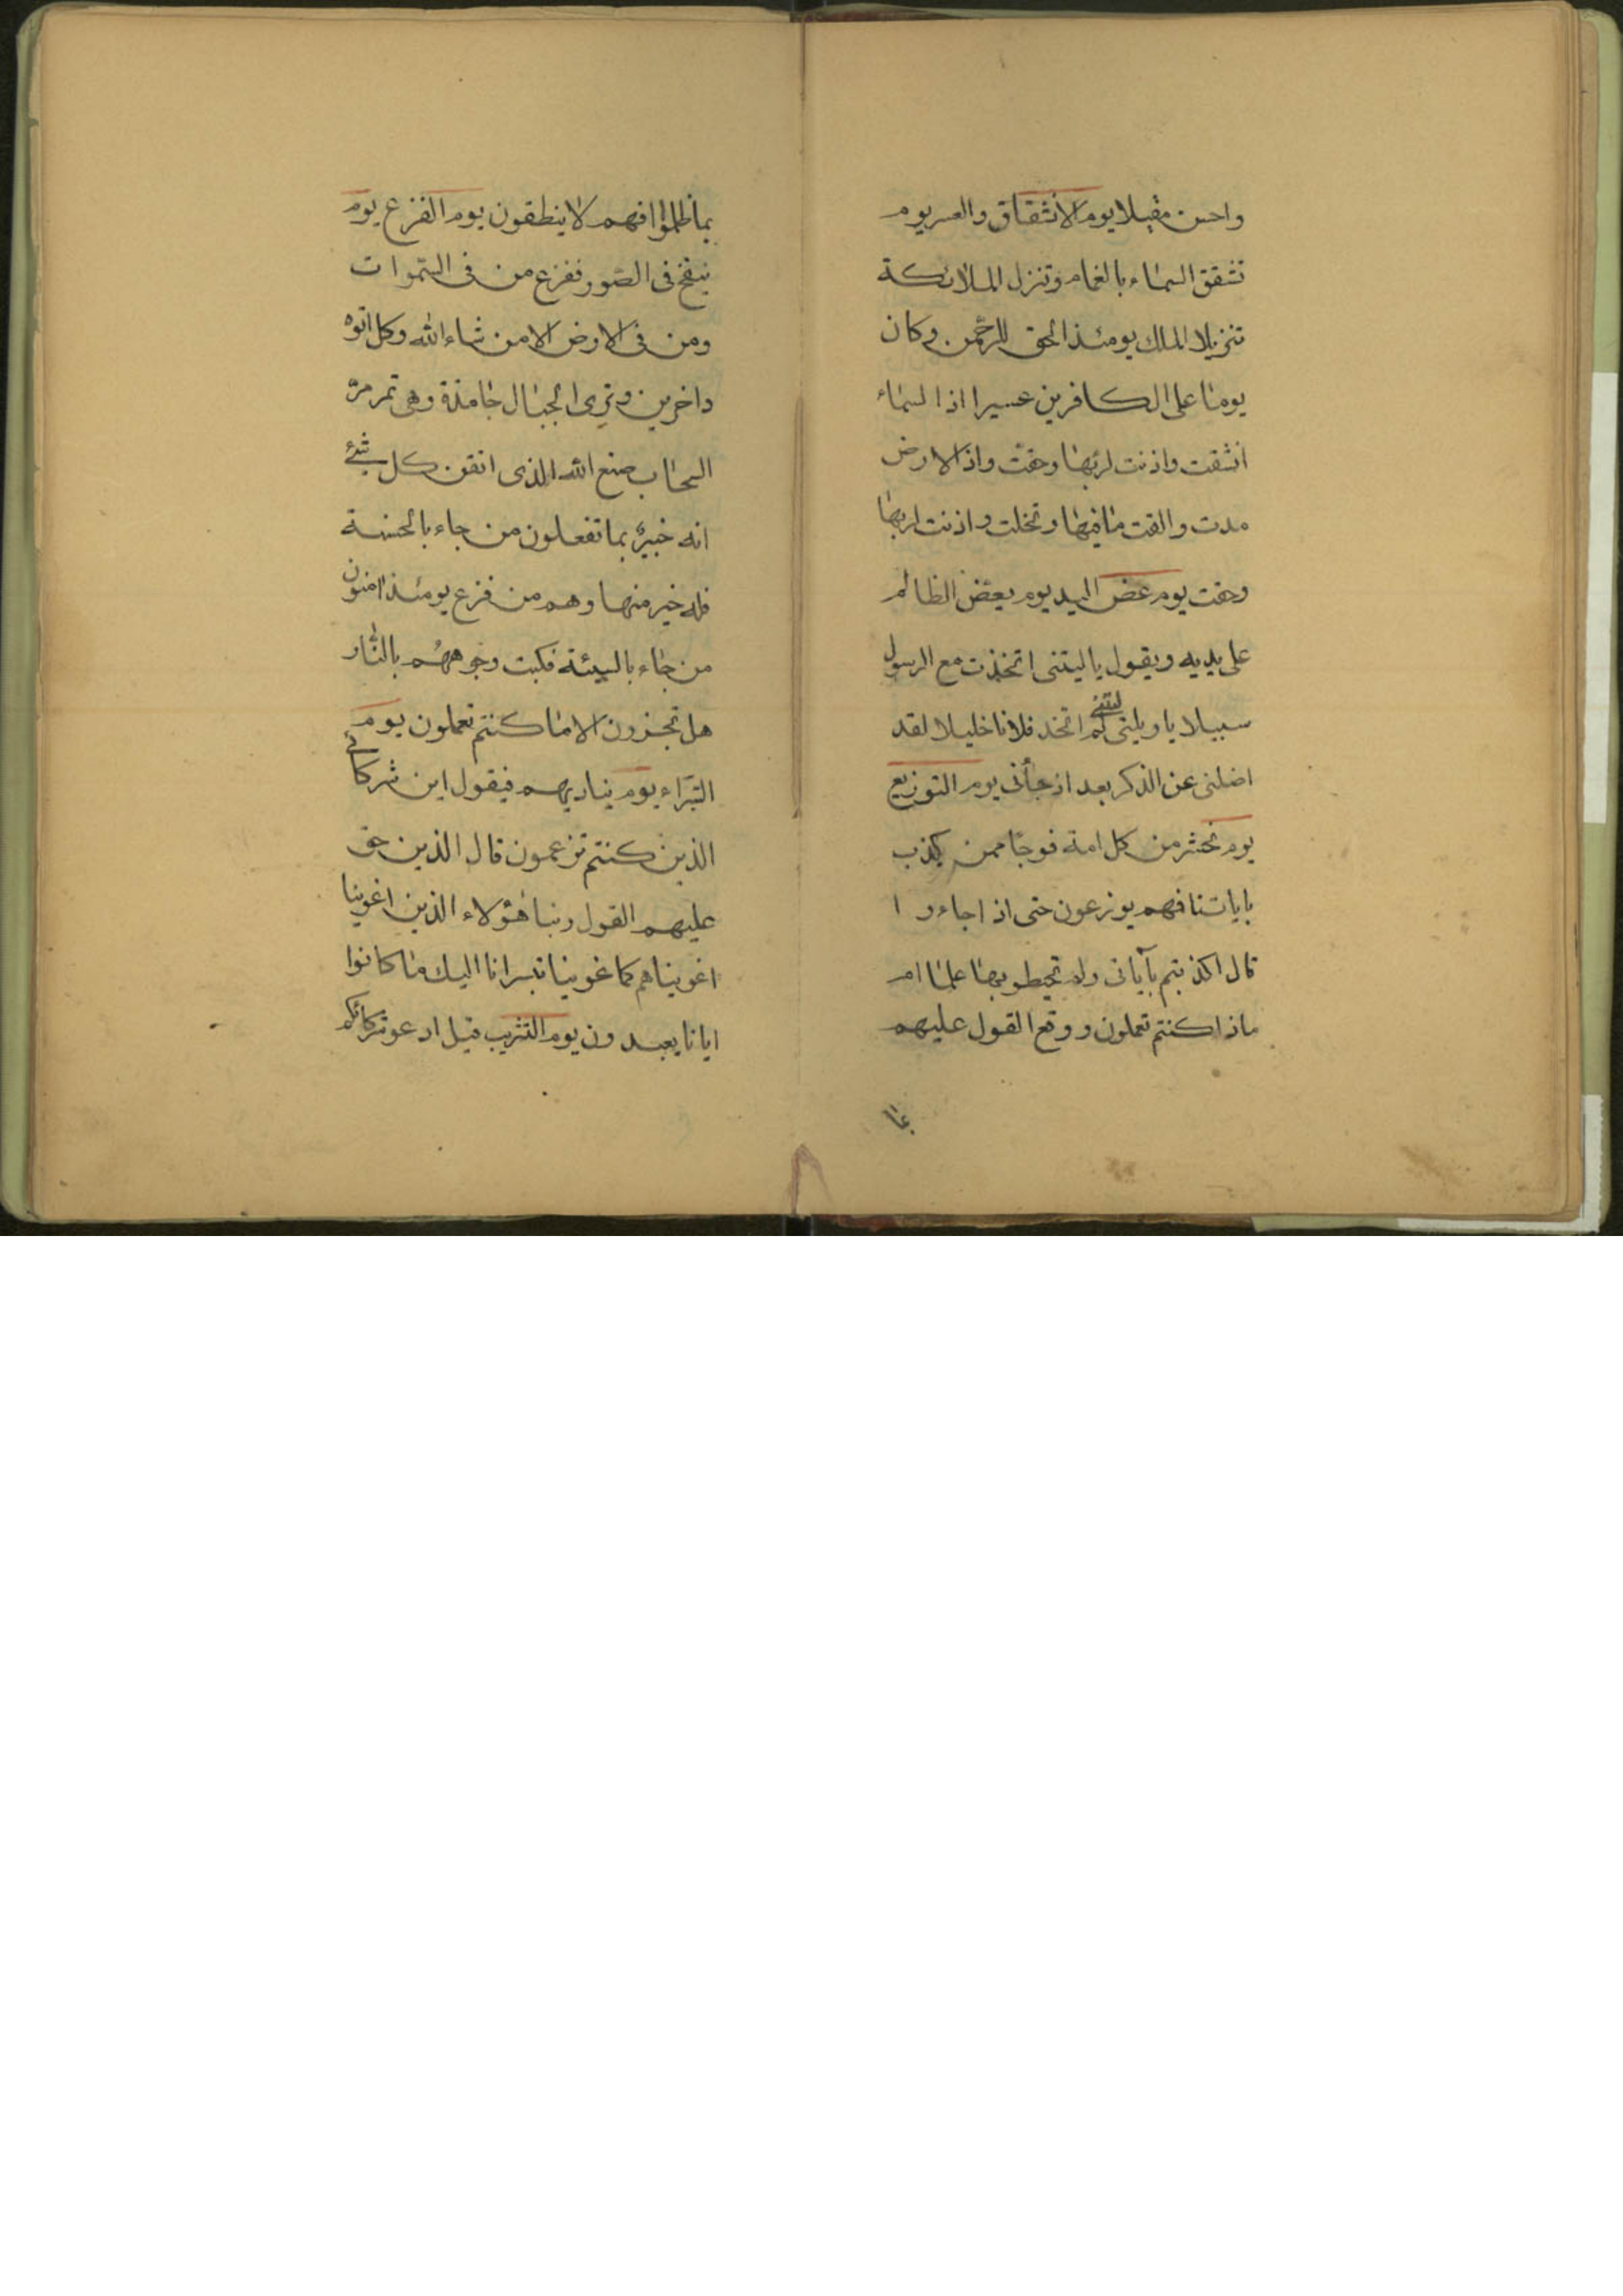 واحسن مقيلا يوم الانشقاق والعسر يوم
تشقق السماء بالغمام وتنزل الملائكة
تنزيلا الملك يومئذ الحق للرحمن وكان
يوما على الكافرين عسيرا اذا السماء
انشقت واذنت لربها وحقت واذ الارض
مدت والقت ما فيها وتخلت واذنت لربها
وحقت يوم عض اليد يوم يعض الظالم
على يديه ويقول يا ليتنى اتخذت مع الرسول
سبيلا يا ويلتى ليتنى لم اتخذ فلانا خليلا لقد
اضلنى عن الذكر بعد اذ جأنى يوم التوزيع
يوم نحشر من كل امة فوجا ممن يكذب
باياتنا فهم يوزعون حتى اذا جاءوا
قال اكذبتم بآياتى ولم تحيطو بها علما ام
ماذا كنتم تعملون ووقع القول عليهم
بما ظلموا فهم لا ينطقون يوم الفزع يوم
ينفخ فى الصّور ففزع من فى السّموات
ومن فى الارض الا من شاء الله وكل اتوه
داخرين وترى الجبال جامدة وهى تمر مرّ
السحاب صنع الله الذى اتقن كل شئ
انه خبيرٌ بما تفعلون من جاء بالحسنة
فله خير منها وهم من فزع يومئذ امنون
من جاء بالسيئة فكبت وجوههُم بالنّار
هل تجزون الا ما كنتم تعملون يوم
التبّراء يوم يناديهم فيقول اين شركائى
الذين كنتم تزعمون قال الذين حق
عليهم القول ربنا هؤلاء الذين اغوينا
اغويناهم كما غوينا تبرانا اليك ما كانوا
ايانا يعبدون يوم التثريب قيل ادعو شركائكم